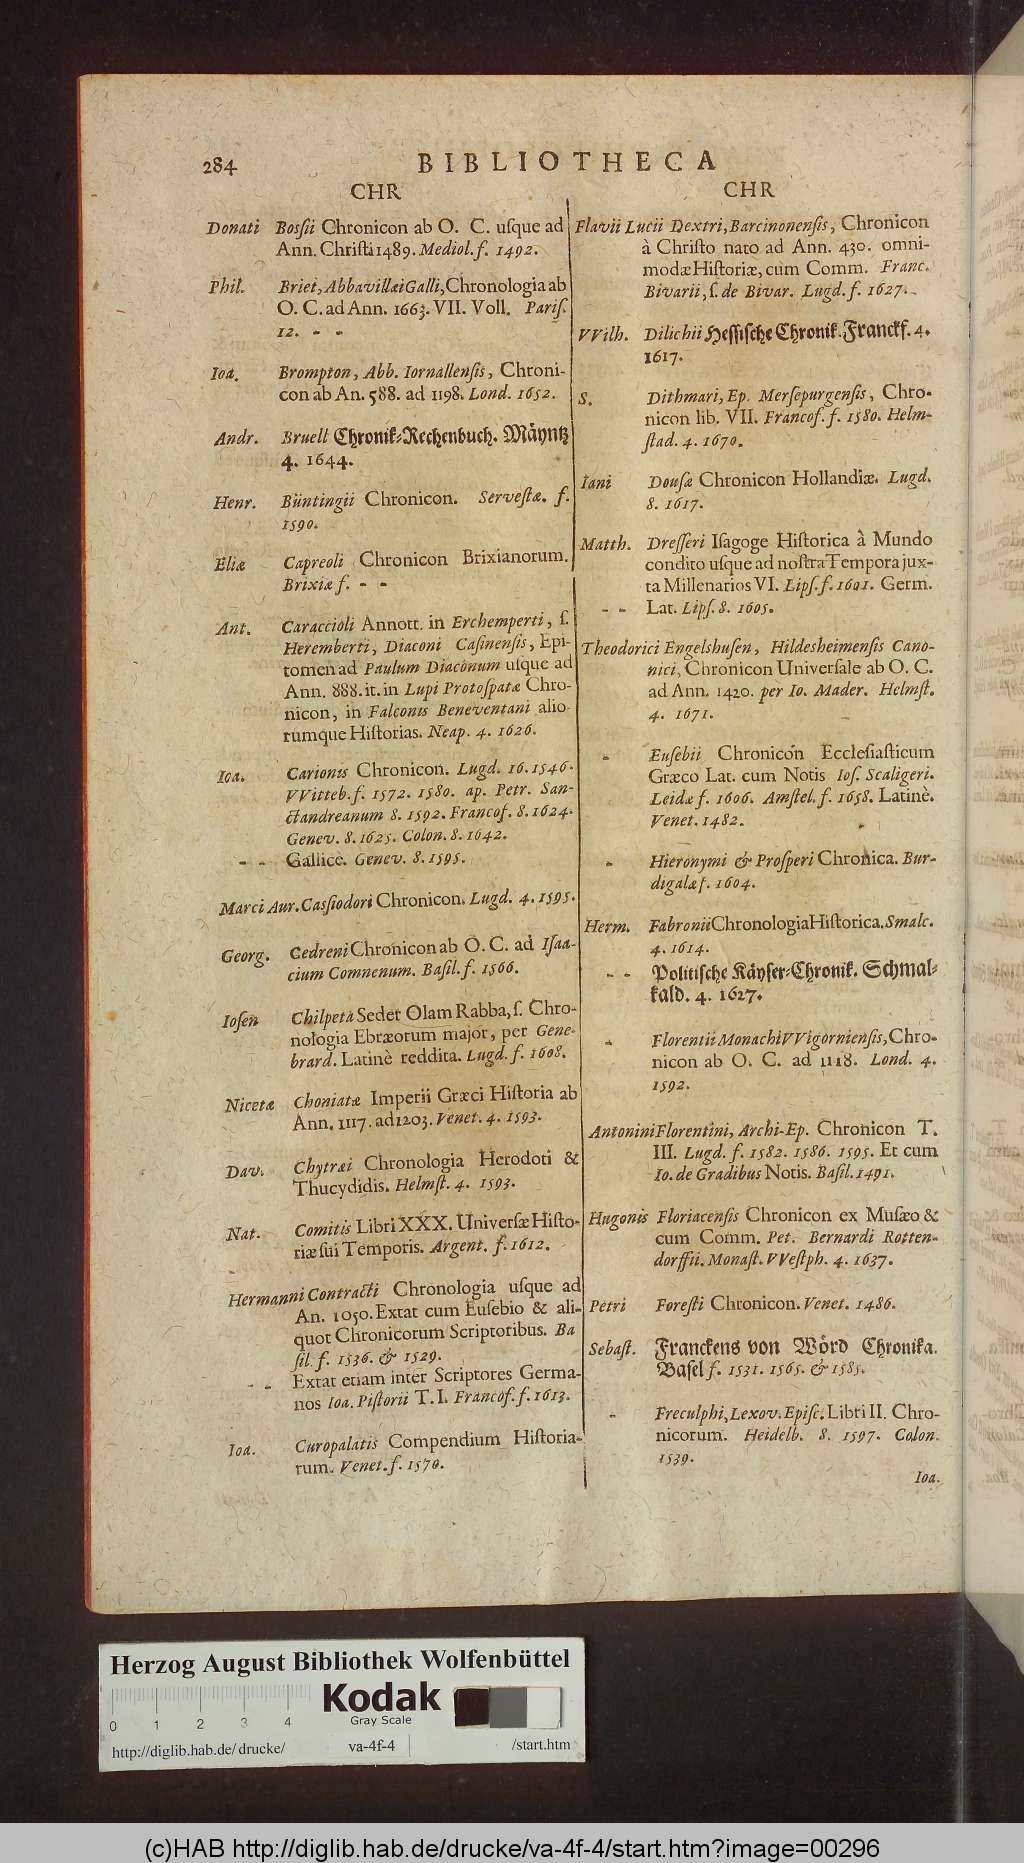 284
BIBLIOTHECA
CHR
Donati Bossii Chronicon ab O. C. usque ad
Ann. Christi 1489. Mediol. f. 1492.
Phil. Briet, Abbavillæi Galli, Chronologia ab
O. C. ad Ann. 1663. VII. Voll. Paris.
12. - -
Ioa. Brompton, Abb. Iornallensis, Chroni-
con ab An. 588. ad 1198. Lond. 1652.
Andr. Bruell Chronik-Rechenbuch. Mäyntz
4. 1644.
Henr. Büntingii Chronicon. Servestæ. f.
1590.
Eliæ Capreoli Chronicon Brixianorum.
Brixiæ f. - -
Ant. Caraccioli Annott. in Erchemperti, s.
Heremberti, Diaconi Casinensis, Epi-
tomen ad Paulum Diaconum usque ad
Ann. 888. it. in Lupi Protospatæ Chro-
nicon, in Falconis Beneventani alio-
rumque Historias. Neap. 4. 1626.
Ioa. Carionis Chronicon. Lugd. 16. 1546.
VVitteb. f. 1572. 1580. ap. Petr. San-
ctandreanum 8. 1592. Francof. 8. 1624.
Genev. 8. 1625. Colon. 8. 1642.
- - Gallicè. Genev. 8. 1595.
Marci Aur. Cassiodori Chronicon. Lugd. 4. 1595.
Georg. Cedreni Chronicon ab O. C. ad Isaa-
cium Comnenum. Basil. f. 1566.
Iosen Chilpetà Seder Olam Rabba, s. Chro-
nologia Ebræorum major, per Gene-
brard. Latinè reddita. Lugd. f. 1608.
Nicetæ Choniatæ Imperii Græci Historia ab
Ann. 1117. ad 1203. Venet. 4. 1593.
Dav. Chytræi Chronologia Herodoti &
Thucydidis. Helmst. 4. 1593.
Nat. Comitis Libri XXX. Universæ Histo-
riæ sui Temporis. Argent. f. 1612.
Hermanni Contracti Chronologia usque ad
An. 1050. Extat cum Eusebio & ali-
quot Chronicorum Scriptoribus. Ba
sil. f. 1536. & 1529.
- - Extat etiam inter Scriptores Germa-
nos Ioa. Pistorii T. I. Francof. f. 1613.
Ioa. Curopalatis Compendium Historia-
rum. Venet. f. 1570.
CHR
Flavii Lucii Dextri, Barcinonensis, Chronicon
à Christo nato ad Ann. 430. omni-
modæ Historiæ, cum Comm. Franc.
Bivarii, s. de Bivar. Lugd. f. 1627.
VVilh. Dilichii Hessische Chronik. Franckf. 4.
1617.
S. Dithmari, Ep. Mersepurgensis, Chro-
nicon lib. VII. Francof. f. 1580. Helm-
stad. 4. 1670.
Iani Dousæ Chronicon Hollandiæ. Lugd.
8. 1617.
Matth. Dresseri Isagoge Historica à Mundo
condito usque ad nostra Tempora jux-
ta Millenarios VI. Lips. f. 1601. Germ.
- - Lat. Lips. 8. 1605.
Theodorici Engelshusen, Hildesheimensis Cano-
nici, Chronicon Universale ab O. C.
ad Ann. 1420. per Io. Mader. Helmst.
4. 1671.
- Eusebii Chronicon Ecclesiasticum
Græco Lat. cum Notis Ios. Scaligeri.
Leidæ f. 1606. Amstel. f. 1658. Latinè.
Venet. 1482.
- Hieronymi & Prosperi Chronica. Bur-
digalæ f. 1604.
Herm. Fabronii Chronologia Historica. Smalc.
4. 1614.
- - Politische Käyser-Chronik. Schmal-
kald. 4. 1627.
- Florentii Monachi VVigorniensis, Chro-
nicon ab O. C. ad 1118. Lond. 4.
1592.
Antonini Florentini, Archi-Ep. Chronicon T.
III. Lugd. f. 1582. 1586. 1595. Et cum
Io. de Gradibus Notis. Basil. 1491.
Hugonis Floriacensis Chronicon ex Musæo &
cum Comm. Pet. Bernardi Rotten-
dorffii. Monast. VVestph. 4. 1637.
Petri Foresti Chronicon. Venet. 1486.
Sebast. Franckens von Wörd Chronika.
Basel f. 1531. 1565. & 1585.
- Freculphi, Lexov. Episc. Libri II. Chro-
nicorum. Heidelb. 8. 1597. Colon.
1539.
Ioa.
Herzog August Bibliothek Wolfenbüttel
Kodak
Gray Scale
0 1 2 3 4
http://diglib.hab.de/drucke/ va-4f-4 /start.htm
(c)HAB http://diglib.hab.de/drucke/va-4f-4/start.htm?image=00296